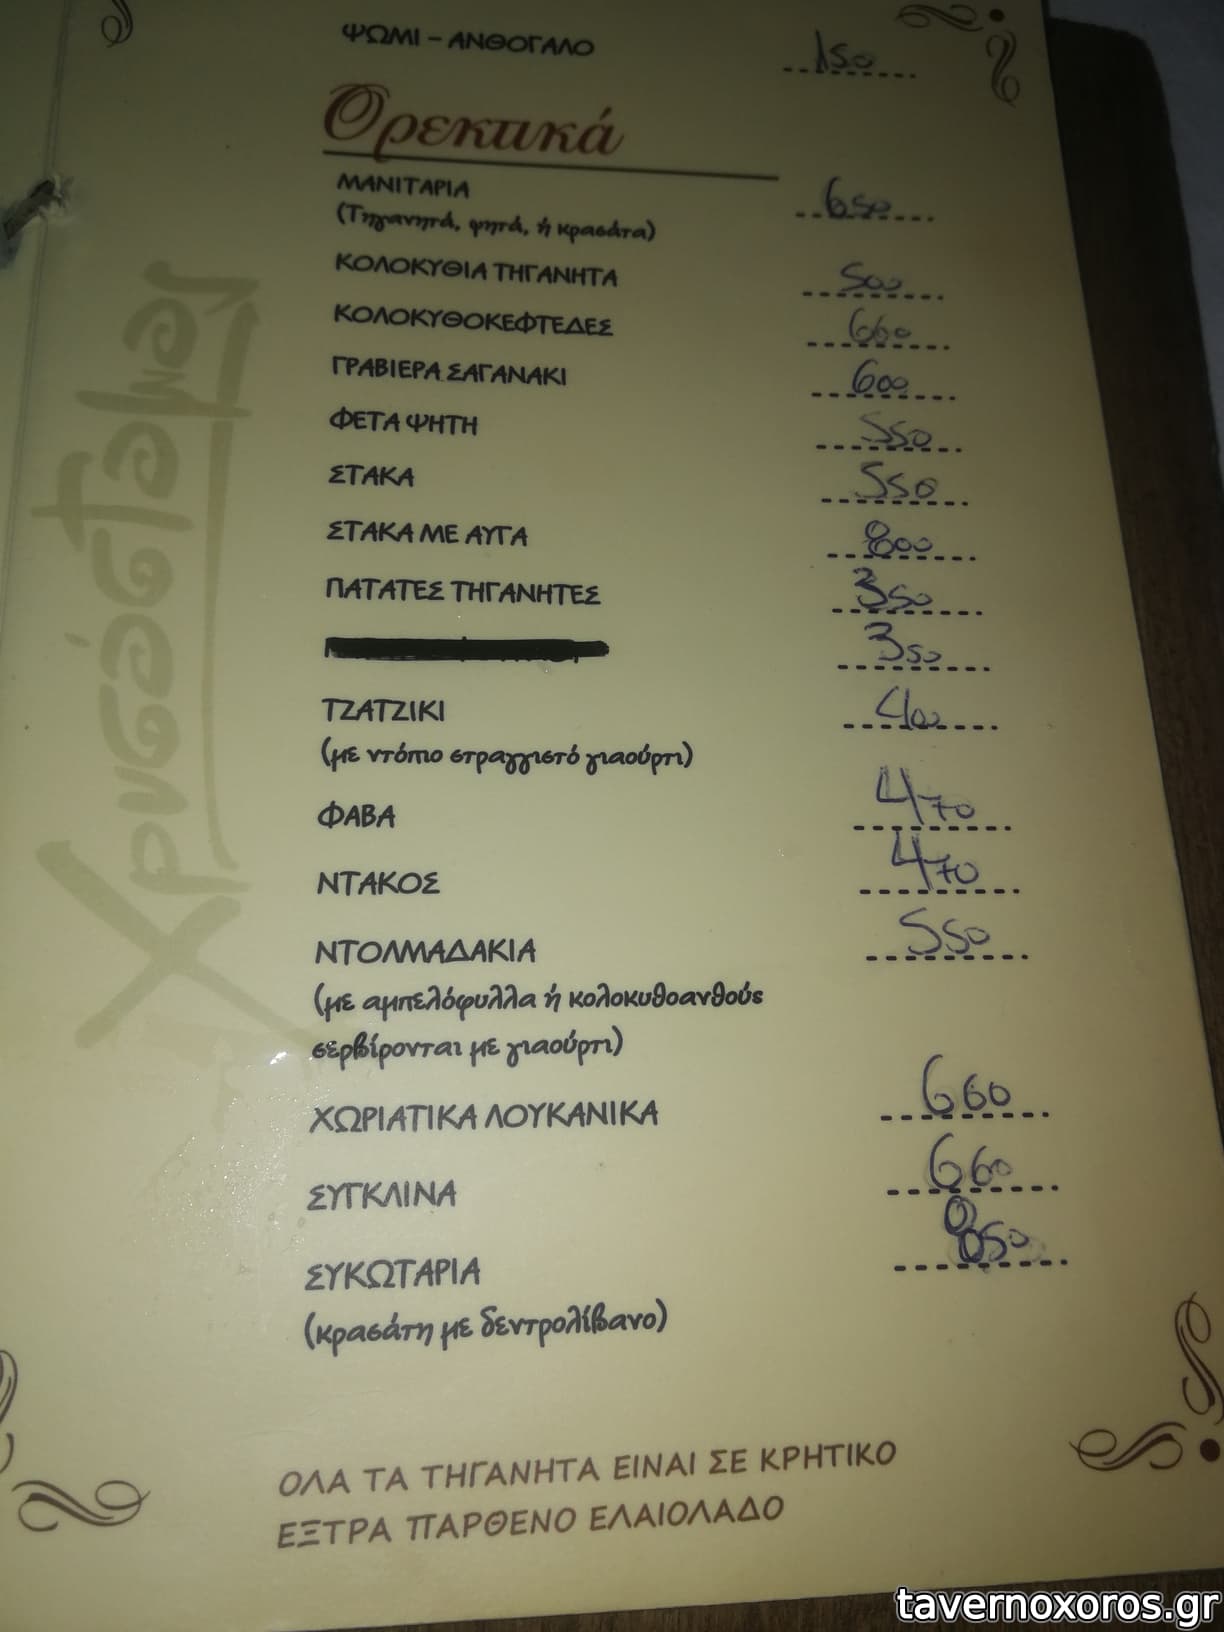 ΨΩΜΙ - ΑΝΘΟΓΑΛΟ 150
Ορεκτικά
ΜΑΝΙΤΑΡΙΑ 650
(Τηγανητά, ψητά, ή κρασάτα)
ΚΟΛΟΚΥΘΙΑ ΤΗΓΑΝΗΤΑ 500
ΚΟΛΟΚΥΘΟΚΕΦΤΕΔΕΣ 660
ΓΡΑΒΙΕΡΑ ΣΑΓΑΝΑΚΙ 600
ΦΕΤΑ ΨΗΤΗ 550
ΣΤΑΚΑ 550
ΣΤΑΚΑ ΜΕ ΑΥΓΑ 800
ΠΑΤΑΤΕΣ ΤΗΓΑΝΗΤΕΣ 350
350
ΤΖΑΤΖΙΚΙ 400
(με ντόπιο στραγγιστό γιαούρτι)
ΦΑΒΑ 470
ΝΤΑΚΟΣ 470
ΝΤΟΛΜΑΔΑΚΙΑ 550
(με αμπελόφυλλα ή κολοκυθοανθούς
σερβίρονται με γιαούρτι)
ΧΩΡΙΑΤΙΚΑ ΛΟΥΚΑΝΙΚΑ 660
ΣΥΓΚΛΙΝΑ 660
ΣΥΚΩΤΑΡΙΑ 850
(κρασάτη με δεντρολίβανο)
ΟΛΑ ΤΑ ΤΗΓΑΝΗΤΑ ΕΙΝΑΙ ΣΕ ΚΡΗΤΙΚΟ
ΕΞΤΡΑ ΠΑΡΘΕΝΟ ΕΛΑΙΟΛΑΔΟ
tavernoxoros.gr